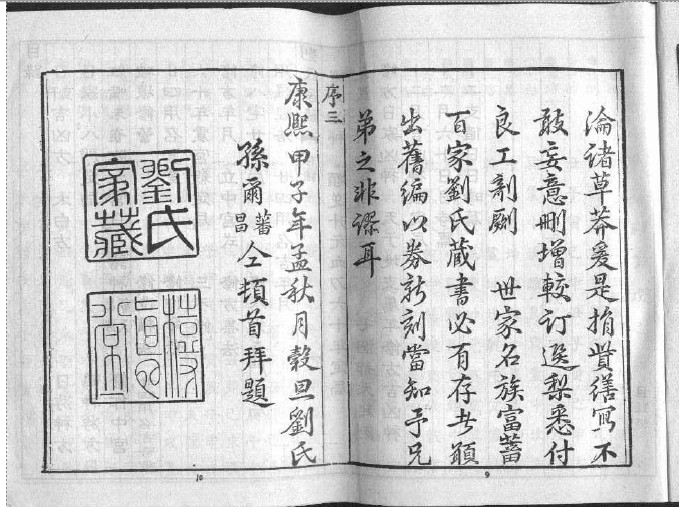 淪諸草莽爰是捐貲繕寫不
敢妄意刪增較訂選梨悉付
良工剞劂　世家名族富蓄
百家劉氏藏書必有存者願
出舊編以券新刻當知予兄
弟之非謬耳
9
序三
康熙甲子年孟秋月穀旦劉氏
孫爾蕃昌仝頓首拜題
劉氏家藏
10